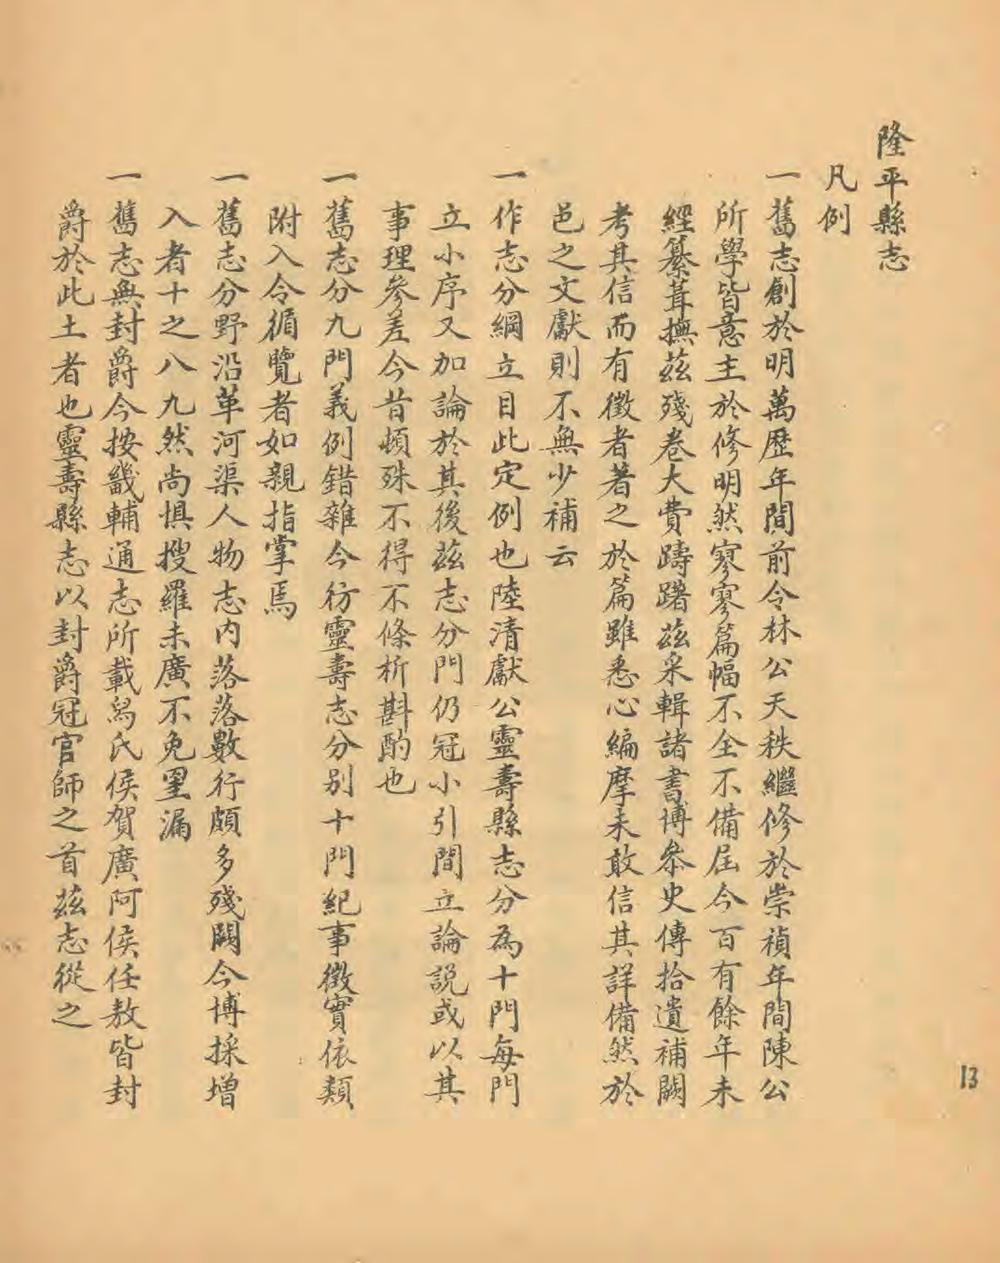 隆平縣志
凡例
一舊志創於明萬歷年間前令林公天秩繼修於崇禎年間陳公
所學皆意主於修明然寥寥篇幅不全不備屆今百有餘年未
經纂葺撫茲殘卷大費躊躇茲采輯諸書博叅史傳拾遺補闕
考其信而有徵者著之於篇雖悉心編摩未敢信其詳備然於
邑之文獻則不無少補云
一作志分綱立目此定例也陸清獻公靈壽縣志分為十門每門
立小序又加論於其後茲志分門仍冠小引間立論說或以其
事理參差今昔頓殊不得不條析斟酌也
一舊志分九門義例錯雜今彷靈壽志分別十門紀事徵實依類
附入令循覽者如親指掌焉
一舊志分野沿革河渠人物志內落落數行頗多殘闕今博採增
入者十之八九然尚惧搜羅未廣不免罣漏
一舊志無封爵今按畿輔通志所載舄氏侯賀廣阿侯任敖皆封
爵於此土者也靈壽縣志以封爵冠官師之首茲志從之
13